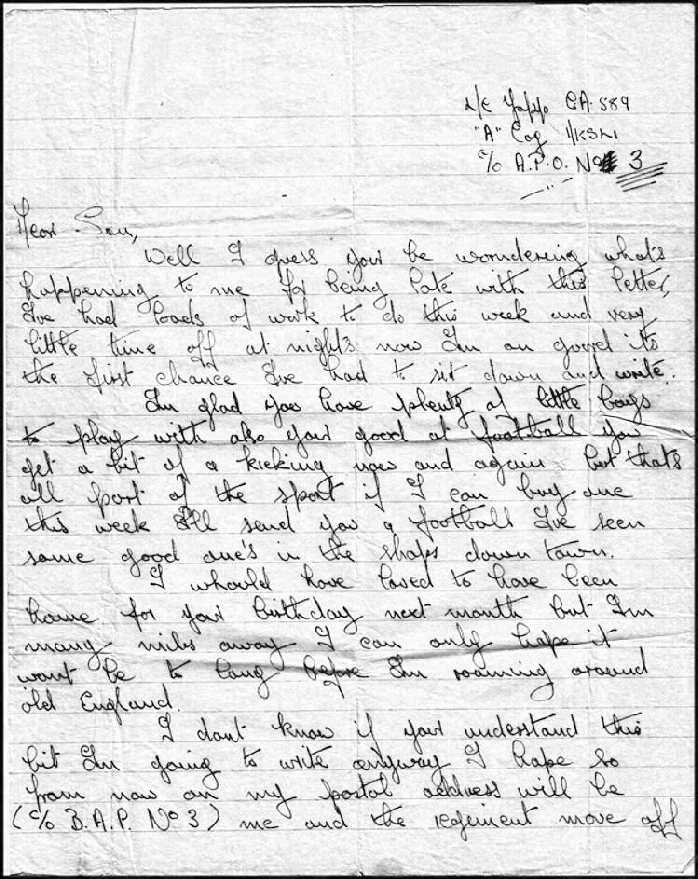 "A" Coy 1/KSLI
c/o A.P.O. No 3
Dear Son,
Well I guess your be wondering what's
happening to me for being late with this letter,
I've had loads of work to do this week and very
little time off at night's now I'm on good it's
the first chance I've had to sit down and write.
I'm glad you have plenty of little boys
to play with also your good at football you
get a bit of a kicking now and again but that's
all part of the sport if I can buy one
this week I'll send you a football I've seen
some good one's in the shops down town.
I whould have loved to have been
home for your birthday next month but I'm
many miles away I can only hope it
wont be to long before I'm roaming around
old England.
I dont know if your understand this
bit I'm going to write anyway I hope so
from now on my postal address will be
(c/o B.A.P. No 3) me and the regiment move off